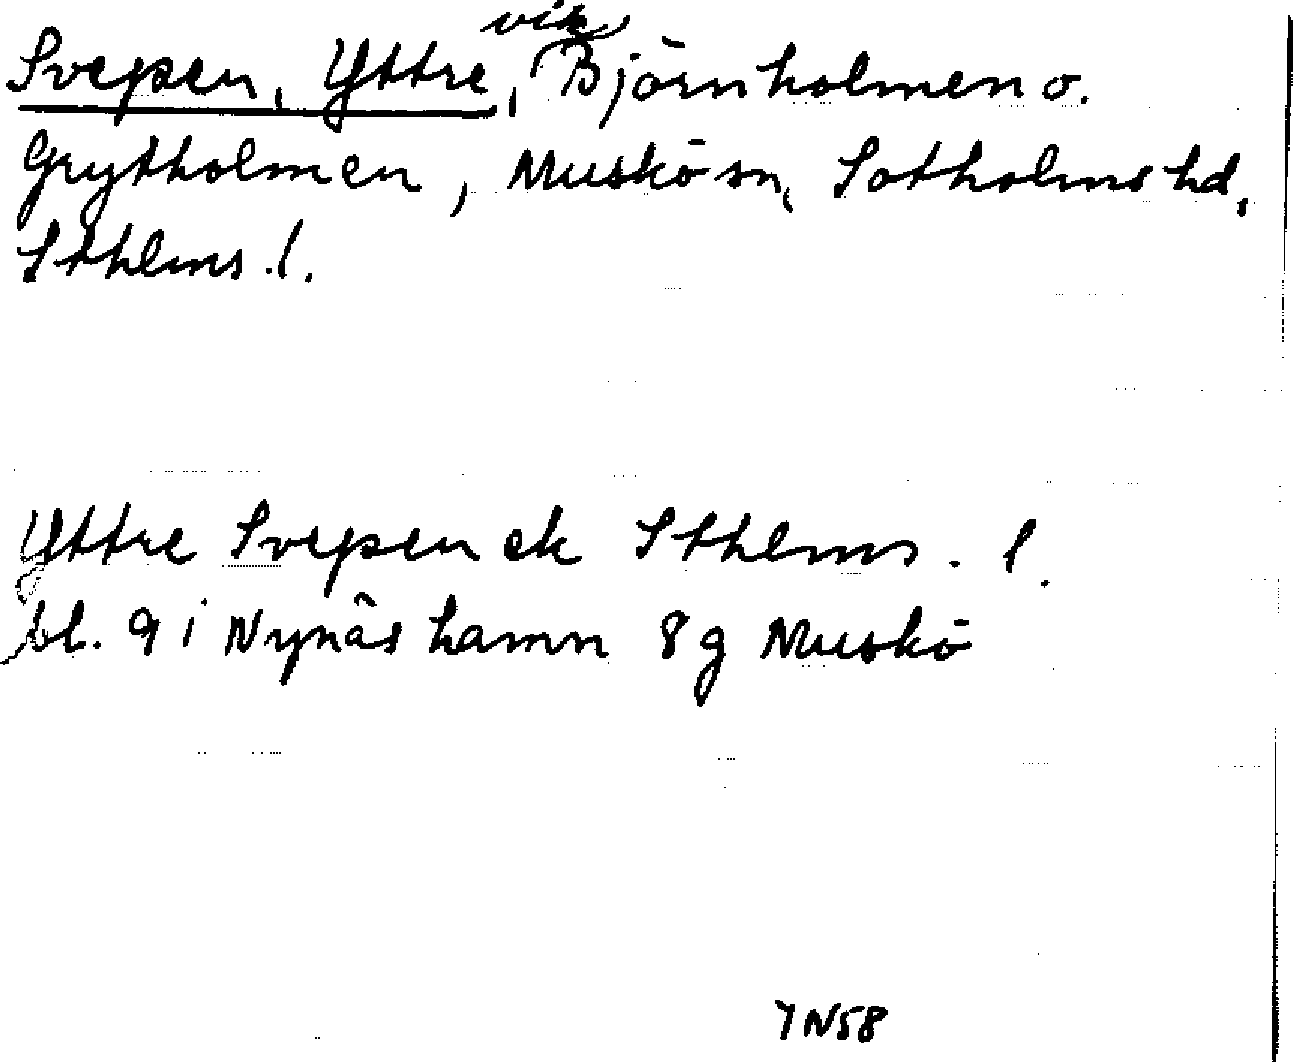 Svepen, Yttre, vik, Björnholmen o.
Grytholmen, Muskö sn, Sotholms hd,
Sthlms l.
Yttre Svepen ek Sthlms. l.
bl. 9 i Nynäshamn 8g Muskö
YN58